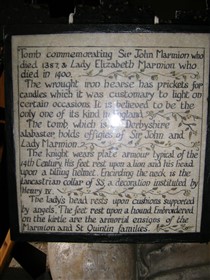 Tomb commemorating Sir John Marmion who
died 1387 & Lady Elizabeth Marmion who
died in 1400.
The wrought iron hearse has prickets for
candles which it was customary to light on
certain occasions. It is believed to be the
only one of its kind in England.
The Tomb which is of Derbyshire
alabaster holds effigies of Sir John and
Lady Marmion.
The knight wears plate armour typical of the
14th Century his feet rest upon a lion and his head
upon a tilting helmet. Encircling the neck is the
Lancastrian collar of SS a decoration instituted by
Henry IV.
The lady's head rests upon cushions supported
by angels. The feet rest upon a hound. Embroidered
on the kirtle are the armorial ensigns of the
Marmion and St Quintin families.